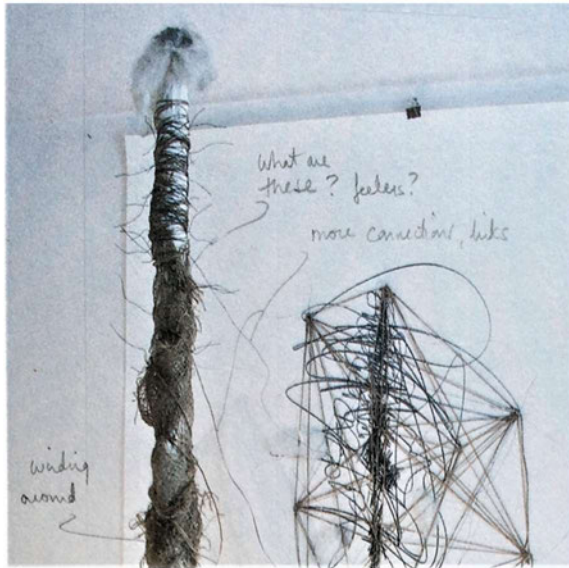 what are
these? feelers?
more connections, links
winding
around